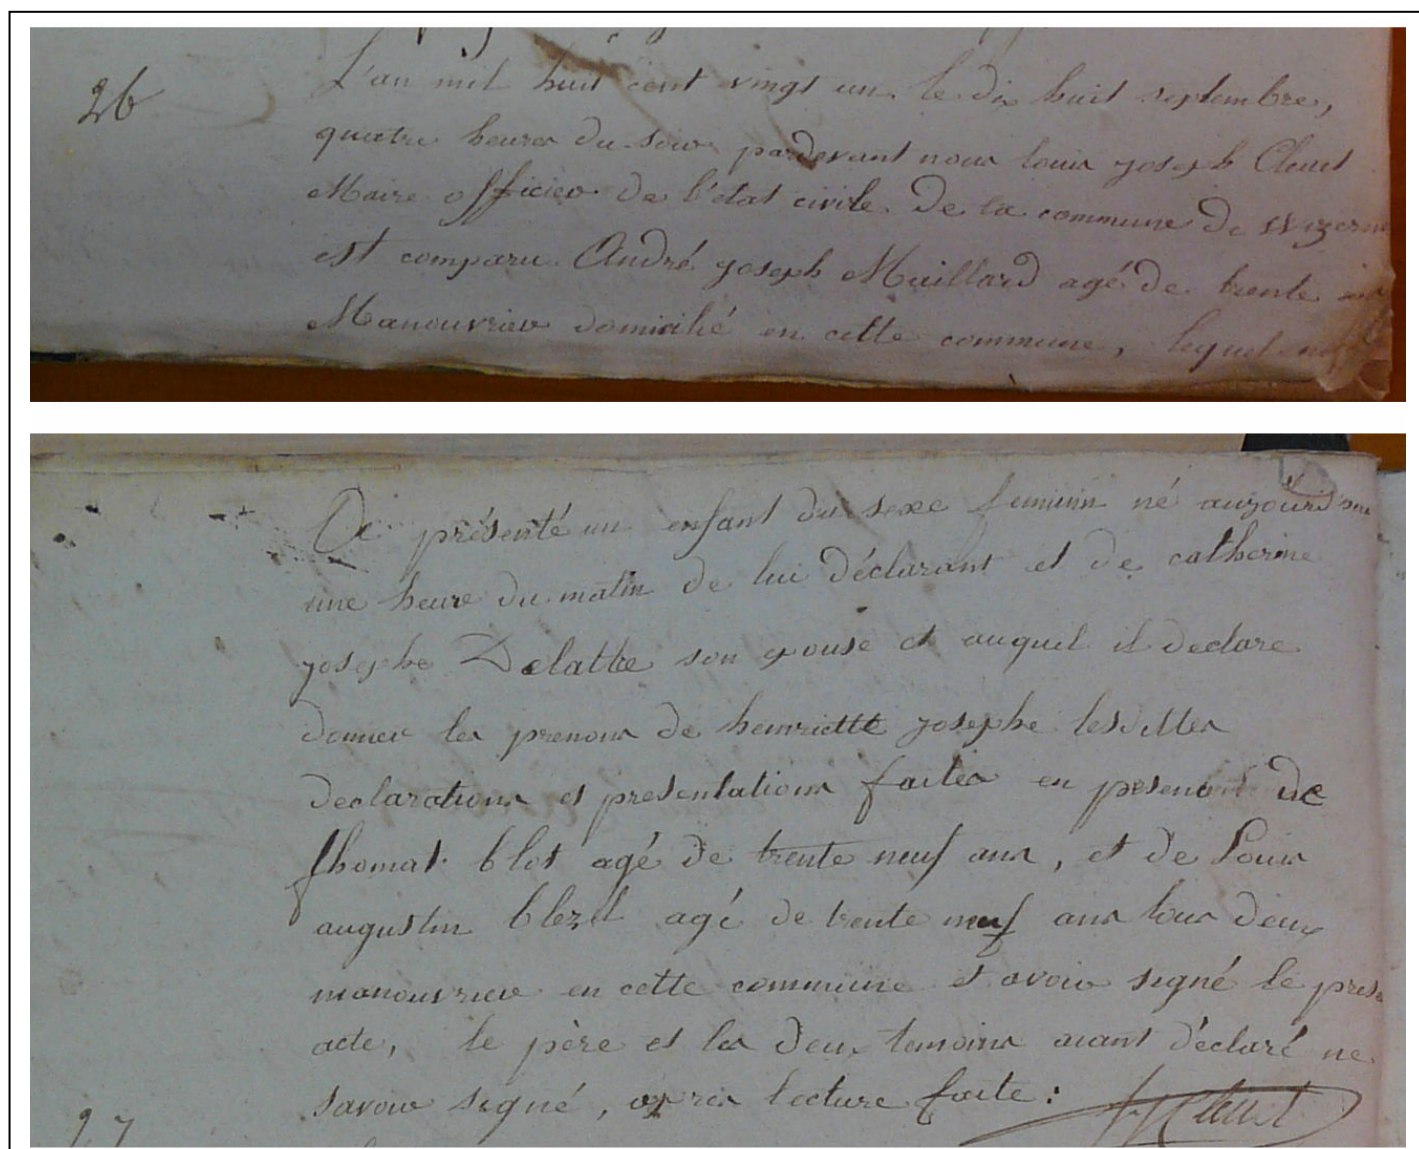 26
L'an mil huit cent vingt un le dix huit septembre,
quatre heures du soir pardevant nous louis joseph Cleuet
Maire officier de l'état civile de la commune de Wizerne
est comparu André joseph Maillard agé de trente
Manouvrier domicilié en cette commune, lequel
présenté un enfant du sexe feminin né aujourd'hui
une heure du matin de lui déclarant et de catherine
josephe Delattre son epouse et auquel il declare
donner les prenoms de henriette josephe lesdittes
declarations et presentations faites en presence de
thomas blot agé de trente neuf ans, et de Louis
augustin blezel agé de trente neuf ans tous deux
manouvrier en cette commune et avoir signé le
acte, le père et les deux temoins aiant déclaré ne
savoir signé, après lecture faite: Cleuet
27